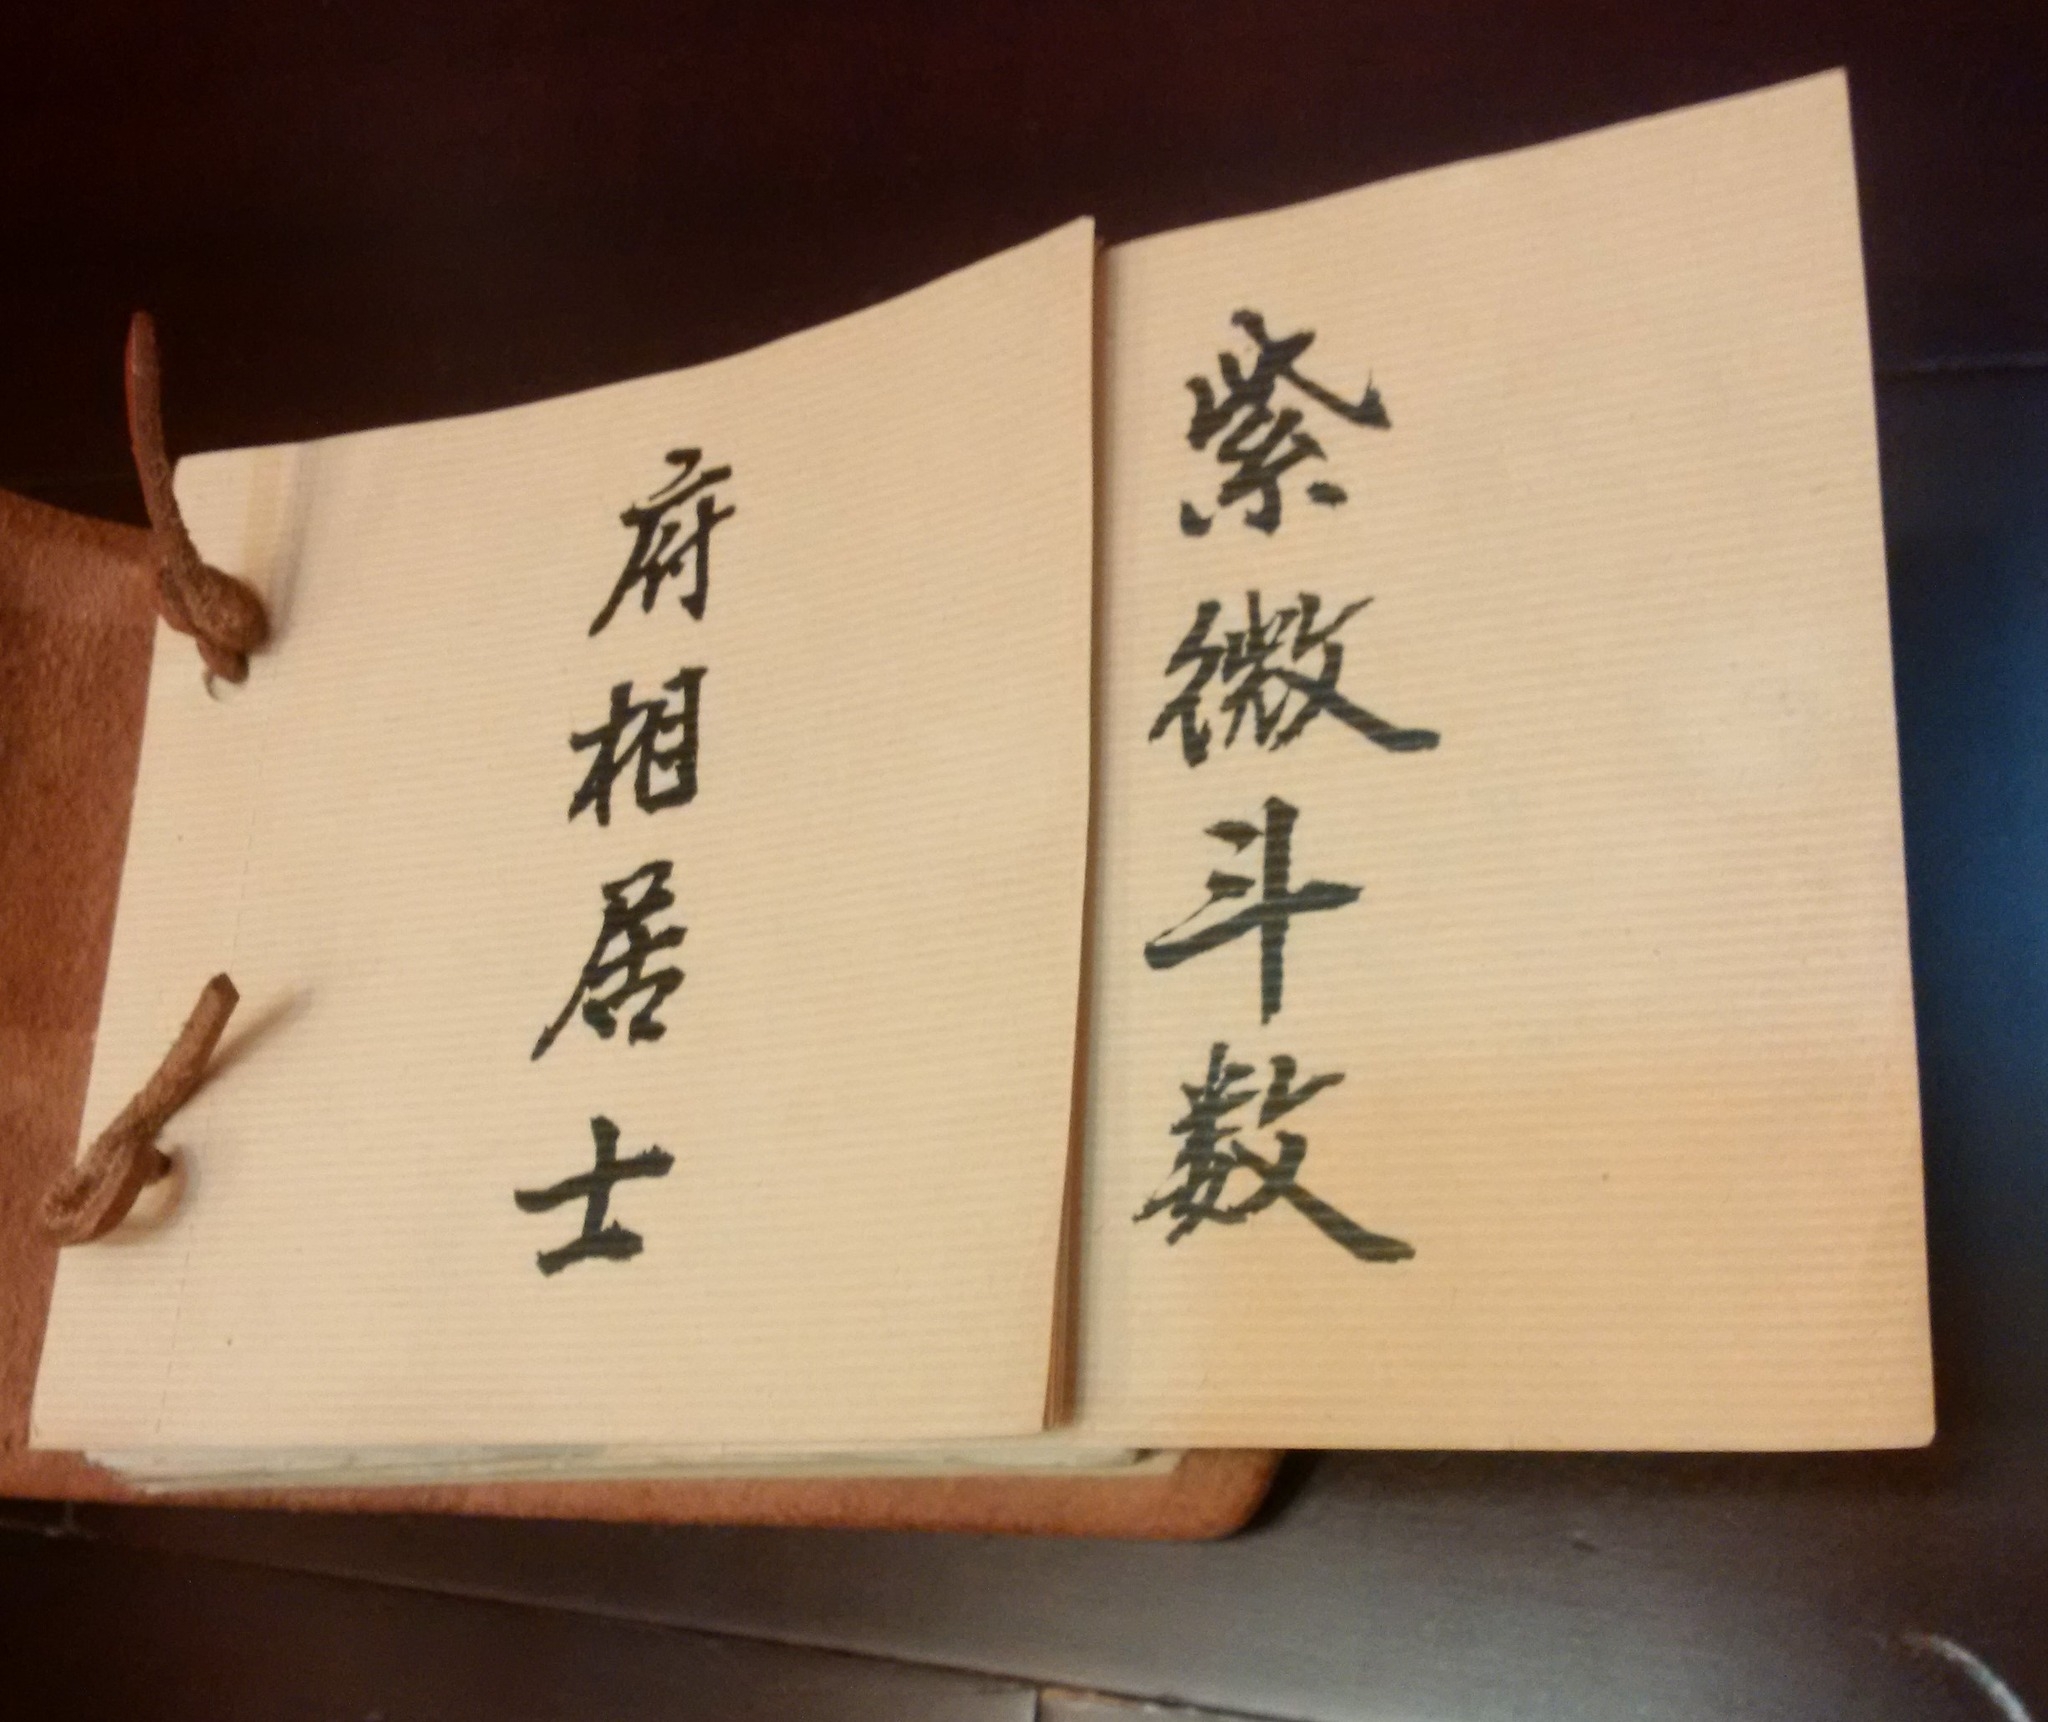 紫微斗数
府相居士